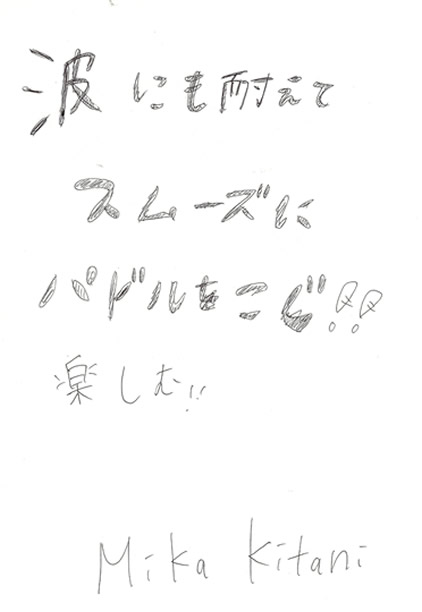 波にも耐えて
スムーズに
パドルをこぐ!!
楽しむ!!
Mika Kitani